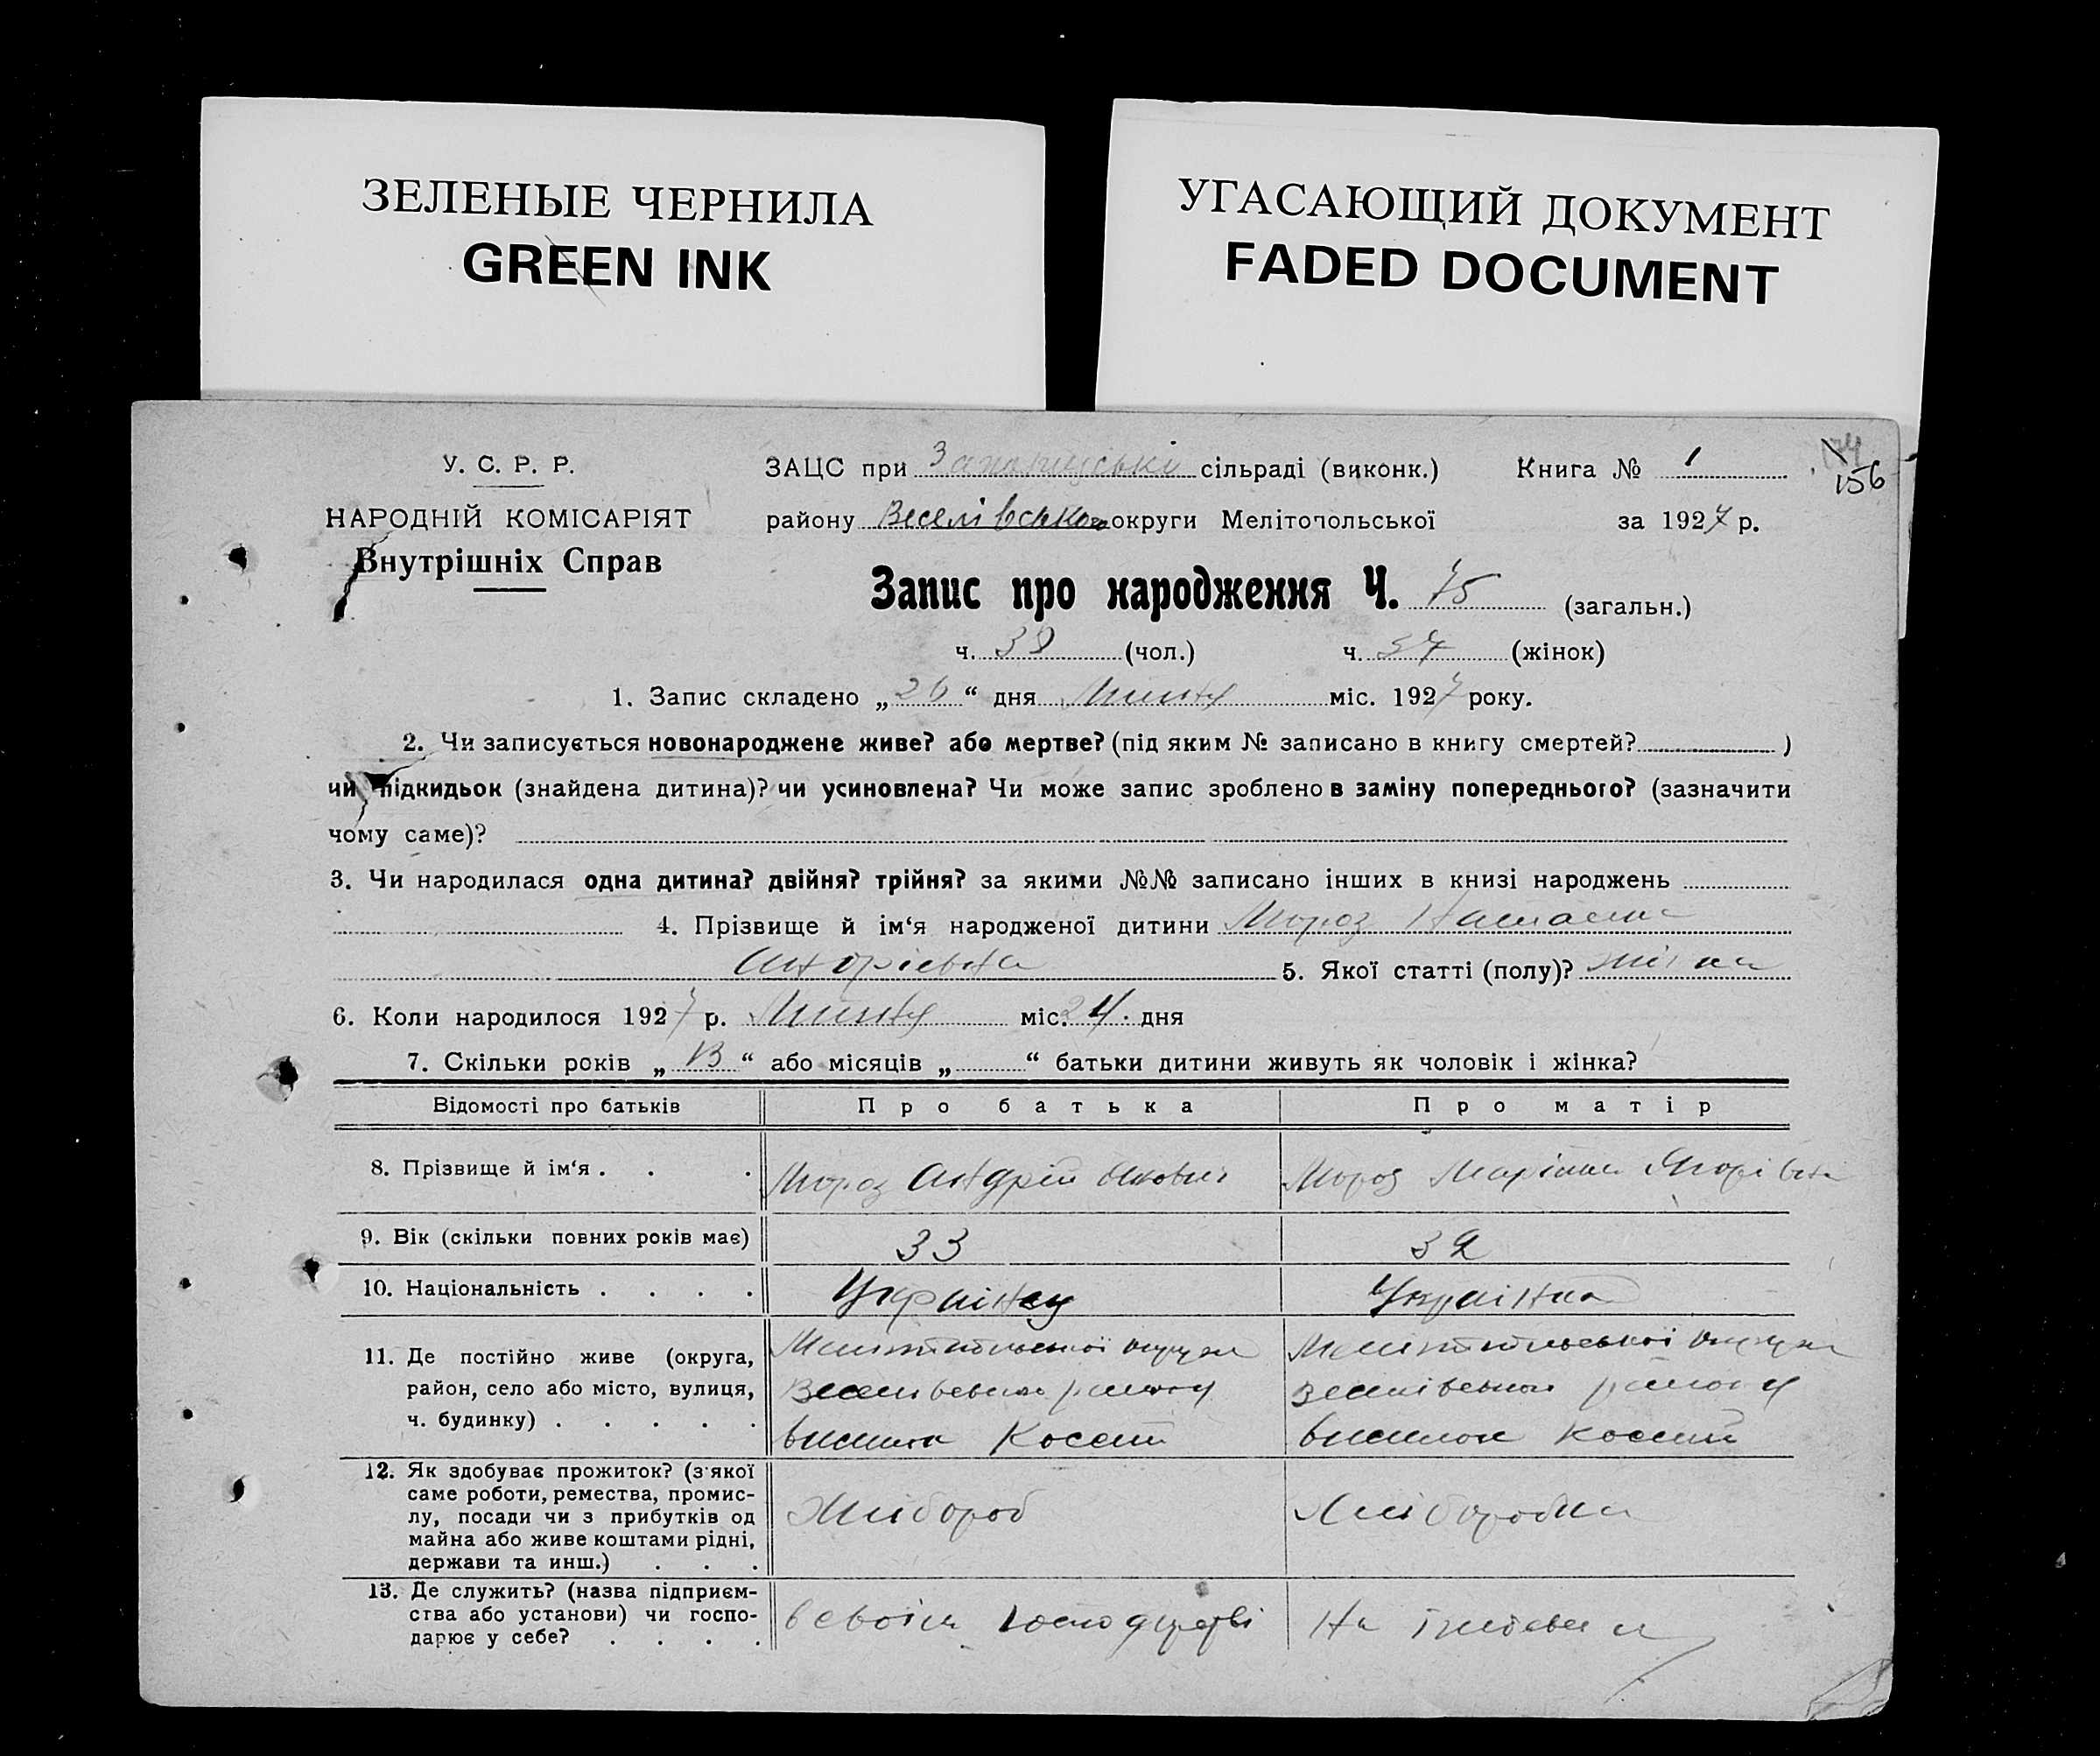 ЗЕЛЕНЫЕ ЧЕРНИЛА
GREEN INK
УГАСАЮЩИЙ ДОКУМЕНТ
FADED DOCUMENT
У. С. Р. Р.
НАРОДНІЙ КОМІСАРІЯТ
Внутрішніх Справ
ЗАЦС при сільраді (виконк.) Книга № 1
156
району Веселівського округи Мелітопольської за 1927 р.
Запис про народження Ч. 75 (загальн.)
ч. 38 (чол.) ч. 37 (жінок)
1. Запис складено „26“ дня міс. 1927 року.
2. Чи записується новонароджене живе? або мертве? (під яким № записано в книгу смертей? )
чи підкидьок (знайдена дитина)? чи усиновлена? Чи може запис зроблено в заміну попереднього? (зазначити
чому саме)?
3. Чи народилася одна дитина? двійня? трійня? за якими №№ записано інших в книзі народжень
4. Прізвище й ім‘я народженої дитини Мороз
Андріевна 5. Якої статті (полу)? жінка
6. Коли народилося 1927 р. міс. 24. дня
7. Скільки років „13“ або місяців „ “ батьки дитини живуть як чоловік і жінка?
Відомості про батьків Про батька Про матір
8. Прізвище й ім‘я . . . Мороз Андрій Мороз
9. Вік (скільки повних років має) 33 32
10. Національність . . . . Українец Українка
11. Де постійно живе (округа, Мелітопольської округи Мелітопольської округи
район, село або місто, вулиця, Веселівського району Веселівського району
ч. будинку) . . . . .
12. Як здобуває прожиток? (з якої
саме роботи, ремества, промис-
лу, посади чи з прибутків од Хлібороб Хліборобка
майна або живе коштами рідні,
держави та инш.) . . .
13. Де служить? (назва підприєм-
ства або установи) чи госпо- в своїм господарстві На
дарює у себе? . . . .